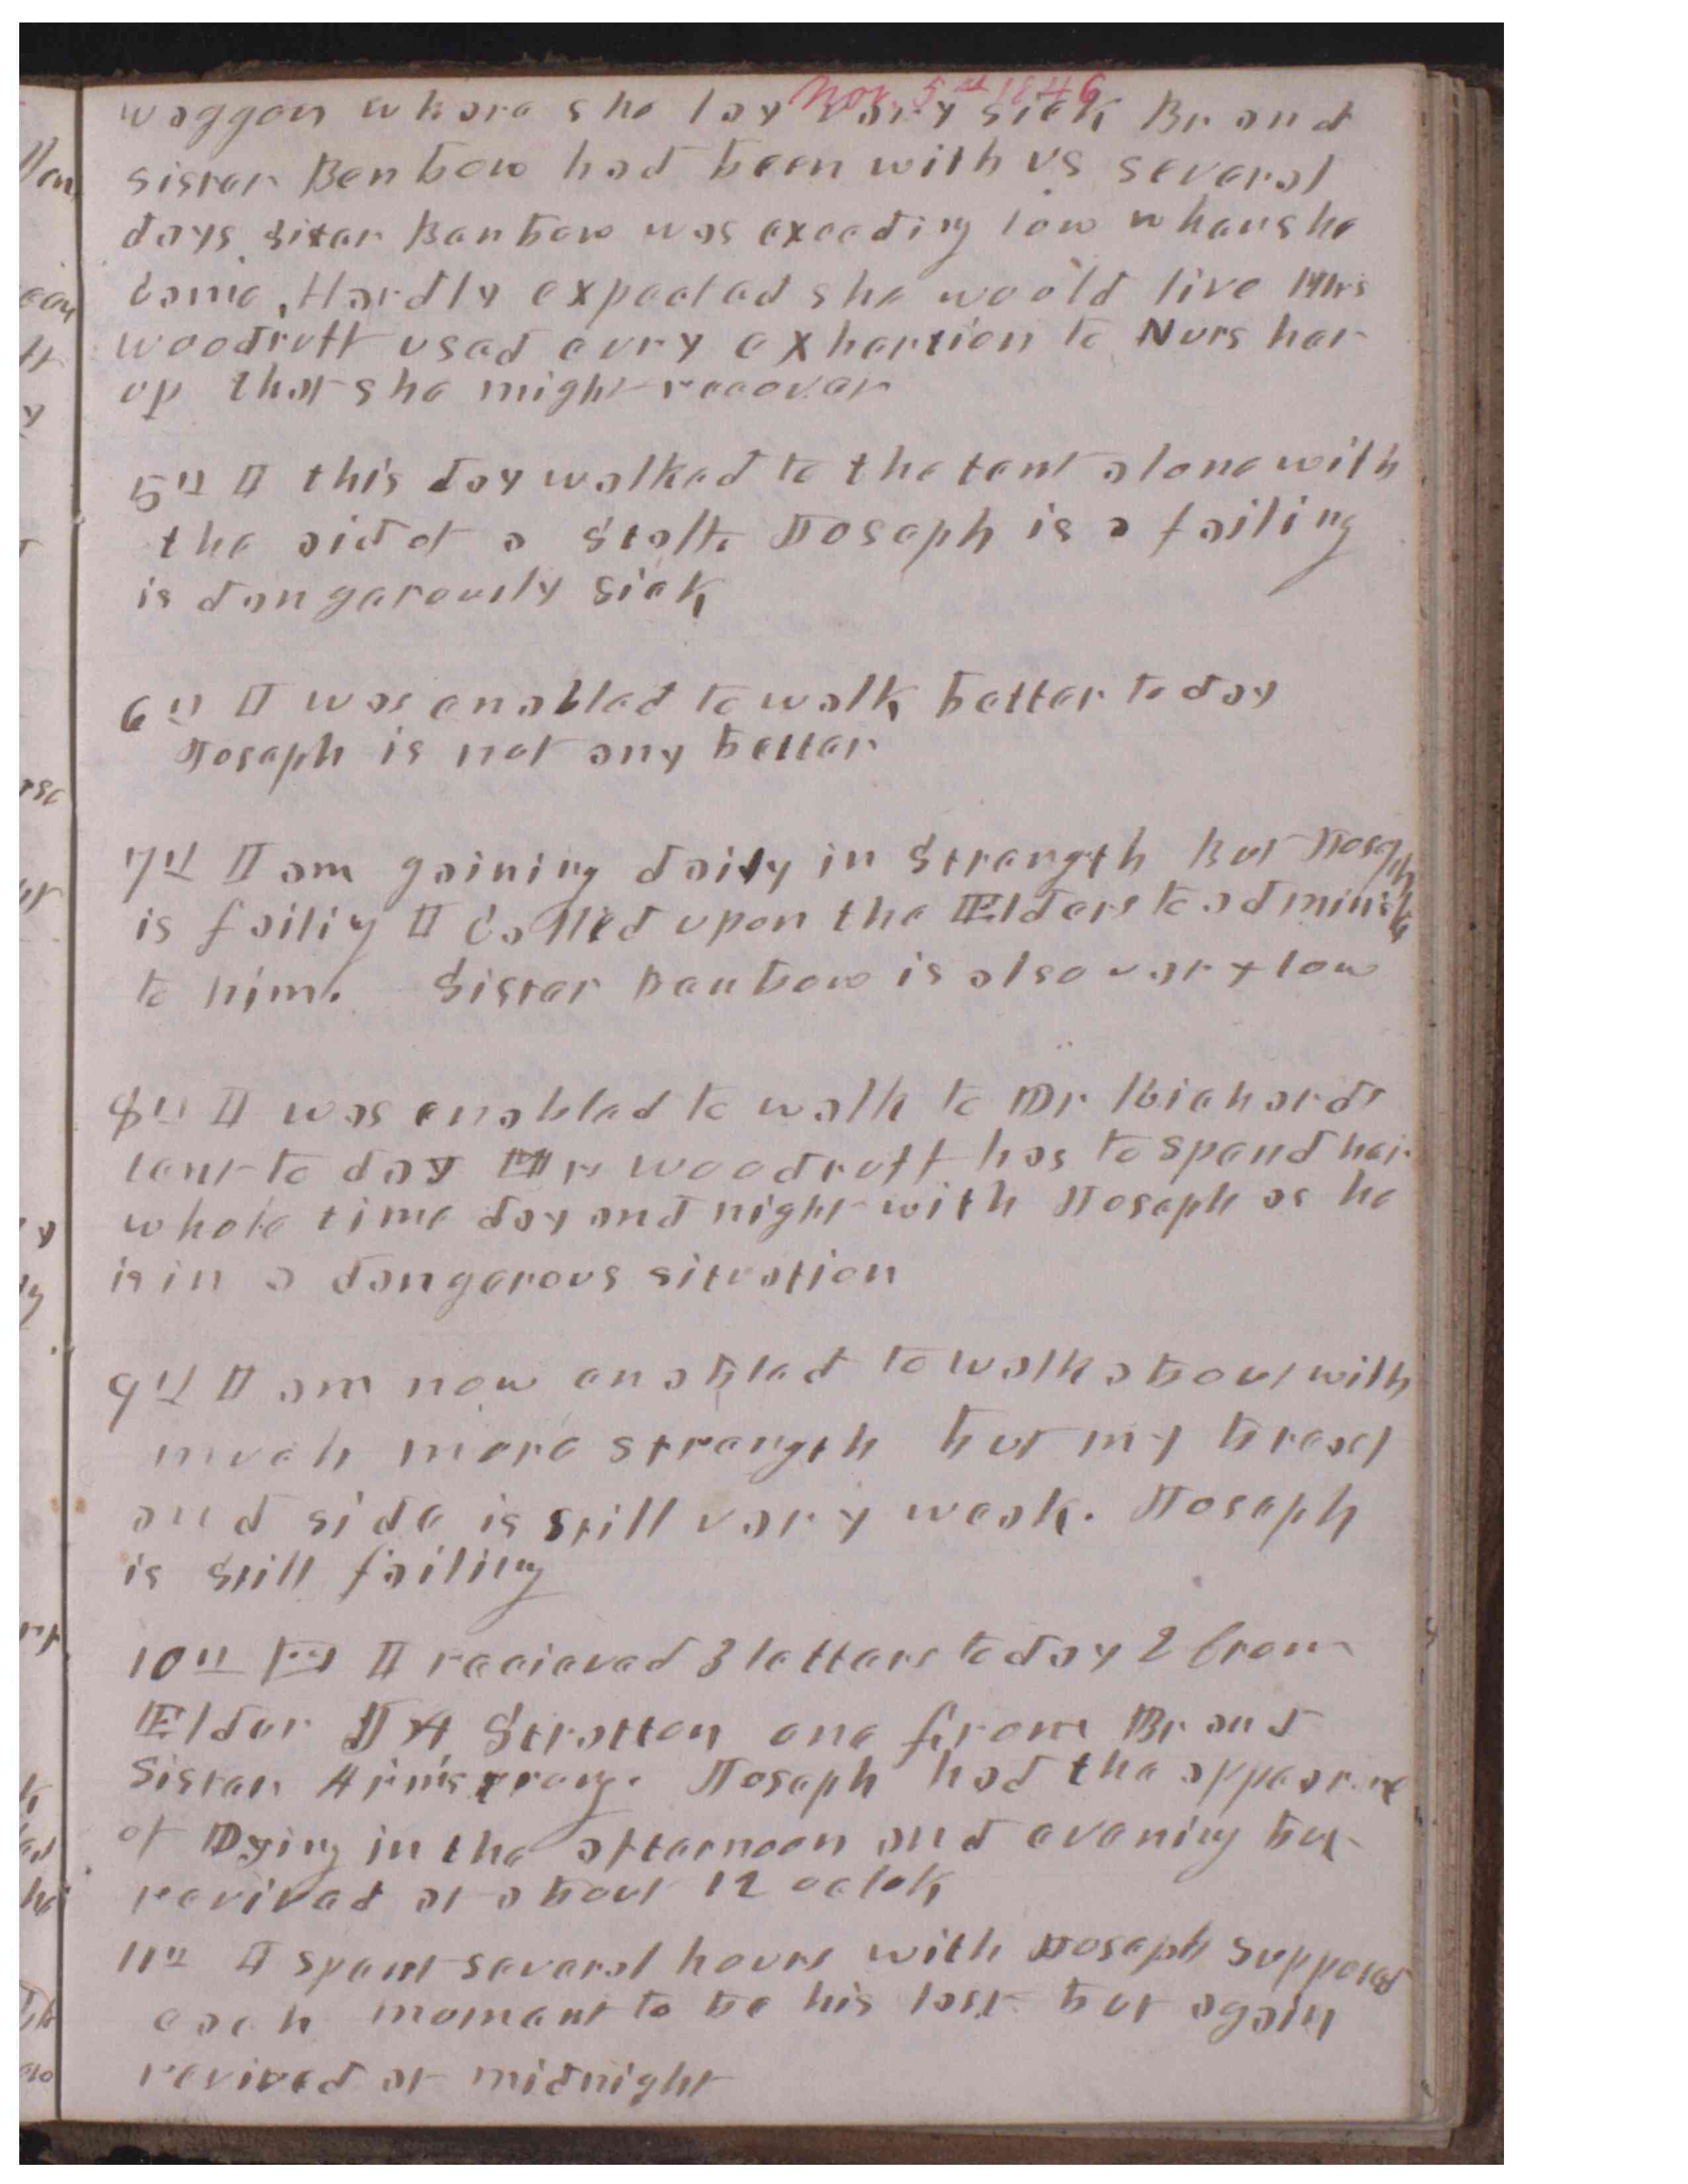 Nov. 5th 1846
waggon where she lay very sick Br and
sister Benbow had been with us several
days sister Benbow was exceding low when she
came, Hardly expected she woold live Mrs
woodruff used evry exhertion to Nurs her
up that she might recover
5th I this day walked to the tent alone with
the aid of a Staff. Joseph is a failing
is dangerously sick
6th I was enabled to walk better to day
Joseph is not any better
7th I am gaining daily in Strength But Joseph
is failing I Called upon the Elders to administer
to him. Sister Benbow is also very low
8th I was enabled to walk to Dr Richards
tent to day Mrs woodruff has to spend her
whole time day and night with Joseph as he
is in a dangerous situation
9th I am now enabled to walk about with
much more strength but my breast
and side is still very weak. Joseph
is still failing
10th I recieved 3 letters to day 2 from
Elder J A Stratton one from Br and
Sister Armstrong. Joseph had the appearance
of Dying in the afternoon and evening but
revived at about 12 oclok
11th I spent several hours with Joseph supposed
each moment to be his last but again
revived at midnight